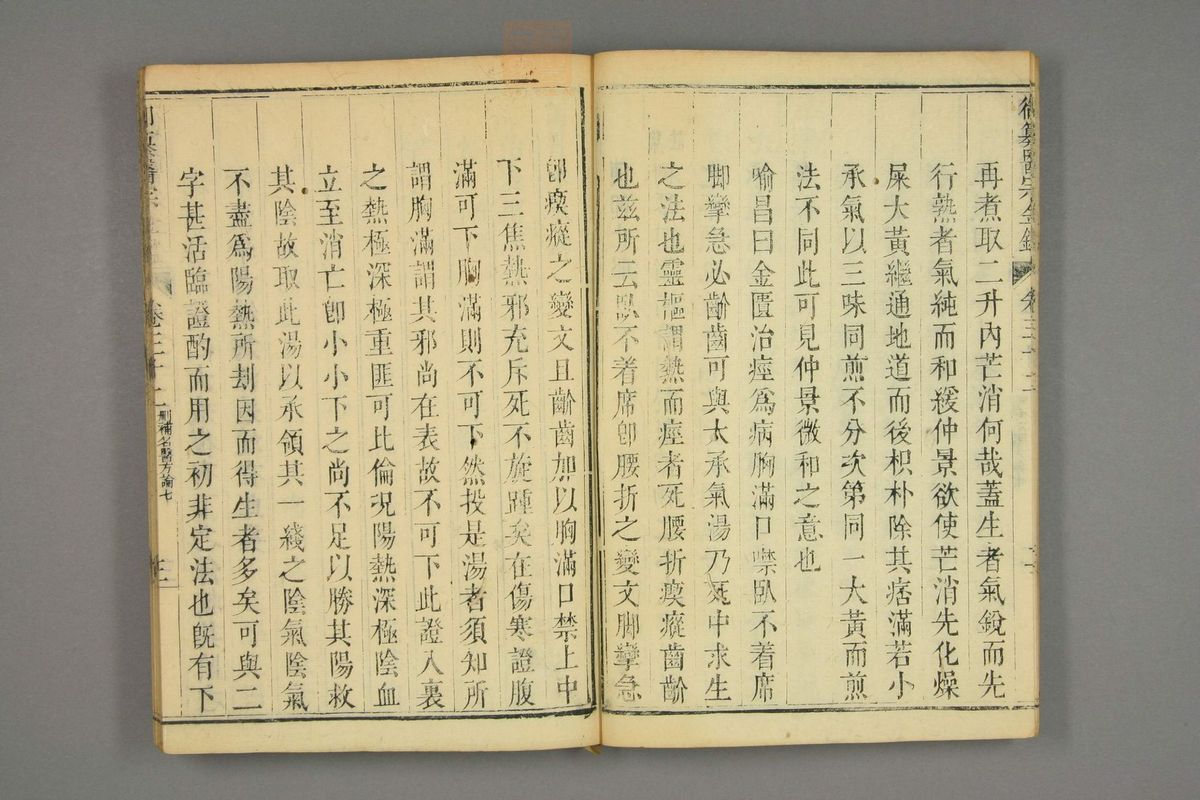 御纂醫宗金鑑 卷三十二
再煮取二升內芒消何哉蓋生者氣銳而先
行熟者氣純而和緩仲景欲使芒消先化燥
屎大黃繼通地道而後枳朴除其痞滿若小
承氣以三味同煎不分次第同一大黃而煎
法不同此可見仲景微和之意也
喻昌曰金匱治痙爲病胸滿口噤臥不着席
脚攣急必齘齒可與大承氣湯乃死中求生
之法也靈樞謂熱而痙者死腰折瘈瘲齒齘
也兹所云臥不着席卽腰折之變文脚攣急
卽瘈瘲之變文且齘齒加以胸滿口禁上中
下三焦熱邪充斥死不旋踵矣在傷寒證腹
滿可下胸滿則不可下然投是湯者須知所
謂胸滿謂其邪尚在表故不可下此證入裏
之熱極深極重匪可比倫況陽熱深極陰血
立至消亡卽小小下之尚不足以勝其陽救
其陰故取此湯以承領其一綫之陰氣陰氣
不盡爲陽熱所刼因而得生者多矣可與二
字甚活臨證酌而用之初非定法也旣有下
卷三十二 刪補名醫方論七